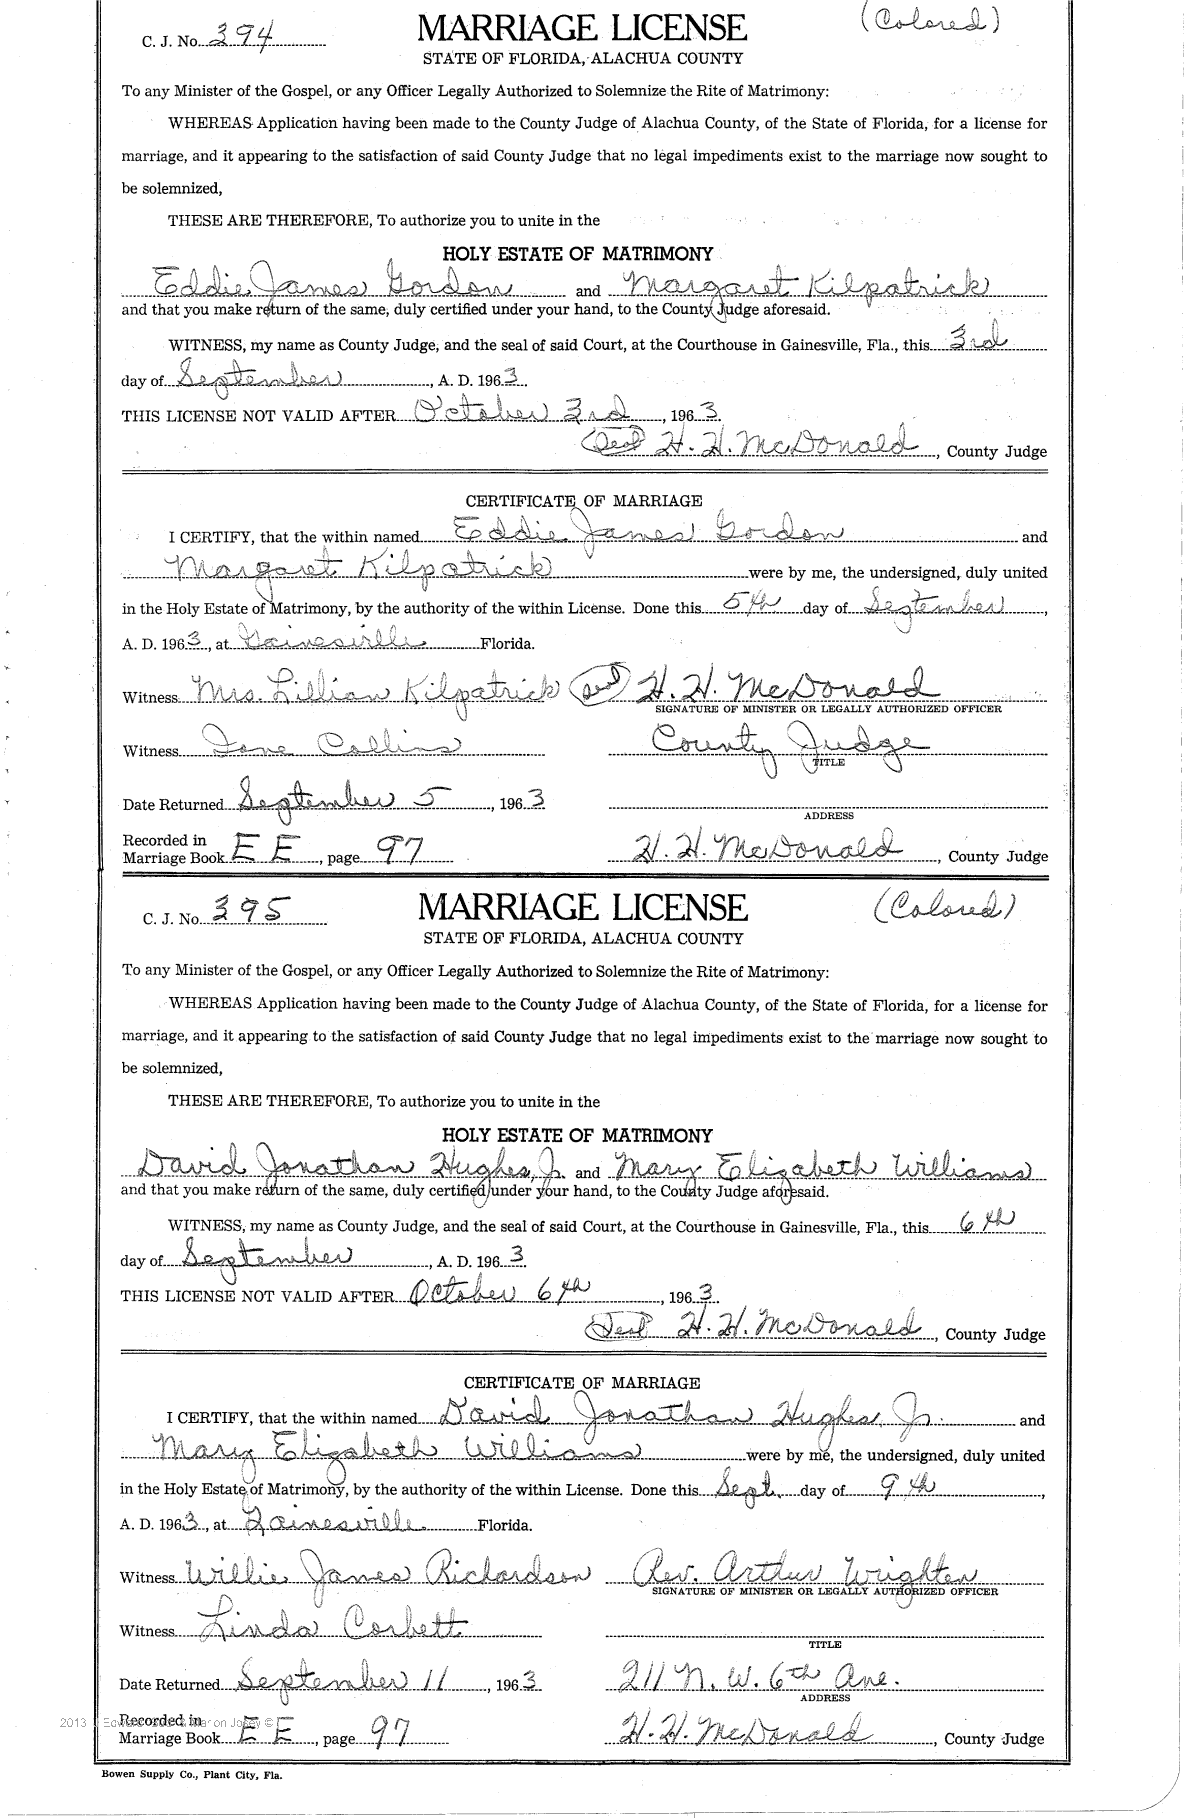 C. J. No. 394 MARRIAGE LICENSE (Colored)
STATE OF FLORIDA, ALACHUA COUNTY
To any Minister of the Gospel, or any Officer Legally Authorized to Solemnize the Rite of Matrimony:
WHEREAS Application having been made to the County Judge of Alachua County, of the State of Florida, for a license for
marriage, and it appearing to the satisfaction of said County Judge that no legal impediments exist to the marriage now sought to
be solemnized,
THESE ARE THEREFORE, To authorize you to unite in the
HOLY ESTATE OF MATRIMONY
Eddie James Gordon and Margaret Kilpatrick
and that you make return of the same, duly certified under your hand, to the County Judge aforesaid.
WITNESS, my name as County Judge, and the seal of said Court, at the Courthouse in Gainesville, Fla., this 3rd
day of September, A. D. 1963.
THIS LICENSE NOT VALID AFTER October 3rd, 1963
(Seal) H. H. McDonald, County Judge
CERTIFICATE OF MARRIAGE
I CERTIFY, that the within named Eddie James Gordon and
Margaret Kilpatrick were by me, the undersigned, duly united
in the Holy Estate of Matrimony, by the authority of the within License. Done this 5th day of September,
A. D. 1963, at Gainesville Florida.
Witness Mrs. Lillian Kilpatrick (Seal) H. H. McDonald
SIGNATURE OF MINISTER OR LEGALLY AUTHORIZED OFFICER
Witness Jane Collins County Judge
TITLE
Date Returned September 5, 1963
ADDRESS
Recorded in
Marriage Book E E, page 97 H. H. McDonald, County Judge
C. J. No. 395 MARRIAGE LICENSE (Colored)
STATE OF FLORIDA, ALACHUA COUNTY
To any Minister of the Gospel, or any Officer Legally Authorized to Solemnize the Rite of Matrimony:
WHEREAS Application having been made to the County Judge of Alachua County, of the State of Florida, for a license for
marriage, and it appearing to the satisfaction of said County Judge that no legal impediments exist to the marriage now sought to
be solemnized,
THESE ARE THEREFORE, To authorize you to unite in the
HOLY ESTATE OF MATRIMONY
David Jonathan Hughes, Jr. and Mary Elizabeth Williams
and that you make return of the same, duly certified under your hand, to the County Judge aforesaid.
WITNESS, my name as County Judge, and the seal of said Court, at the Courthouse in Gainesville, Fla., this 6th
day of September, A. D. 1963.
THIS LICENSE NOT VALID AFTER October 6th, 1963.
(Seal) H. H. McDonald, County Judge
CERTIFICATE OF MARRIAGE
I CERTIFY, that the within named David Jonathan Hughes, Jr. and
Mary Elizabeth Williams were by me, the undersigned, duly united
in the Holy Estate of Matrimony, by the authority of the within License. Done this Sept. day of 9th,
A. D. 1963, at Gainesville Florida.
Witness Willie James Richardson Rev. Arthur Wrighten
SIGNATURE OF MINISTER OR LEGALLY AUTHORIZED OFFICER
Witness Linda Corbett
TITLE
Date Returned September 11, 1963 211 N. W. 6th Ave.
ADDRESS
Recorded in
2013 ©
Marriage Book E E, page 97 H. H. McDonald, County Judge
Bowen Supply Co., Plant City, Fla.